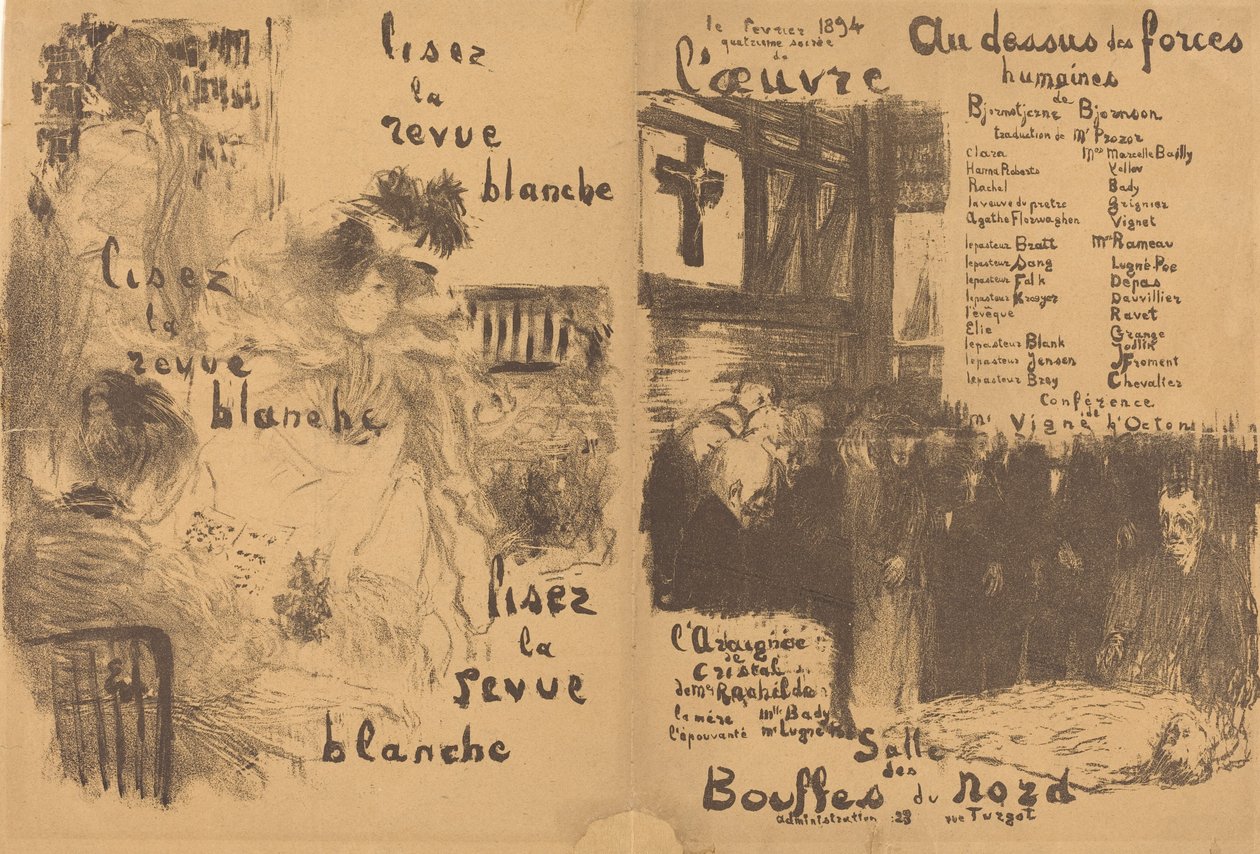 lisez
la
revue
blanche
lisez
la
revue
blanche
lisez
la
revue
blanche
le fevrier 1894
quatrieme soirée
de
l'œuvre
Au dessus des forces
humaines
de
Bjornstjerne Bjornson
traduction de Mr Prozor
Clara Mes Marcelle Bailly
Hanna Roberts Yellov
Rachel Bady
la veuve du pretre Grignier
Agathe Florwaghen Vignet
le pasteur Bratt Mrs Rameau
le pasteur Sang Lugné-Poe
le pasteur Falk Depas
le pasteur Kroeyer Dauvillier
l'évêque Ravet
Elie Grange
le pasteur Blank Jodlik
le pasteur Jensen JFroment
le pasteur Brey Chevalier
Conférence
de
Mr Vigné d'Octon
l'Araignée
de
Cristal
de Me Rachilde
la mère Mlle Bady
l'épouvanté Mr Lugné Poe
Salle
des
Bouffes du Nord
administration : 23 rue Turgot